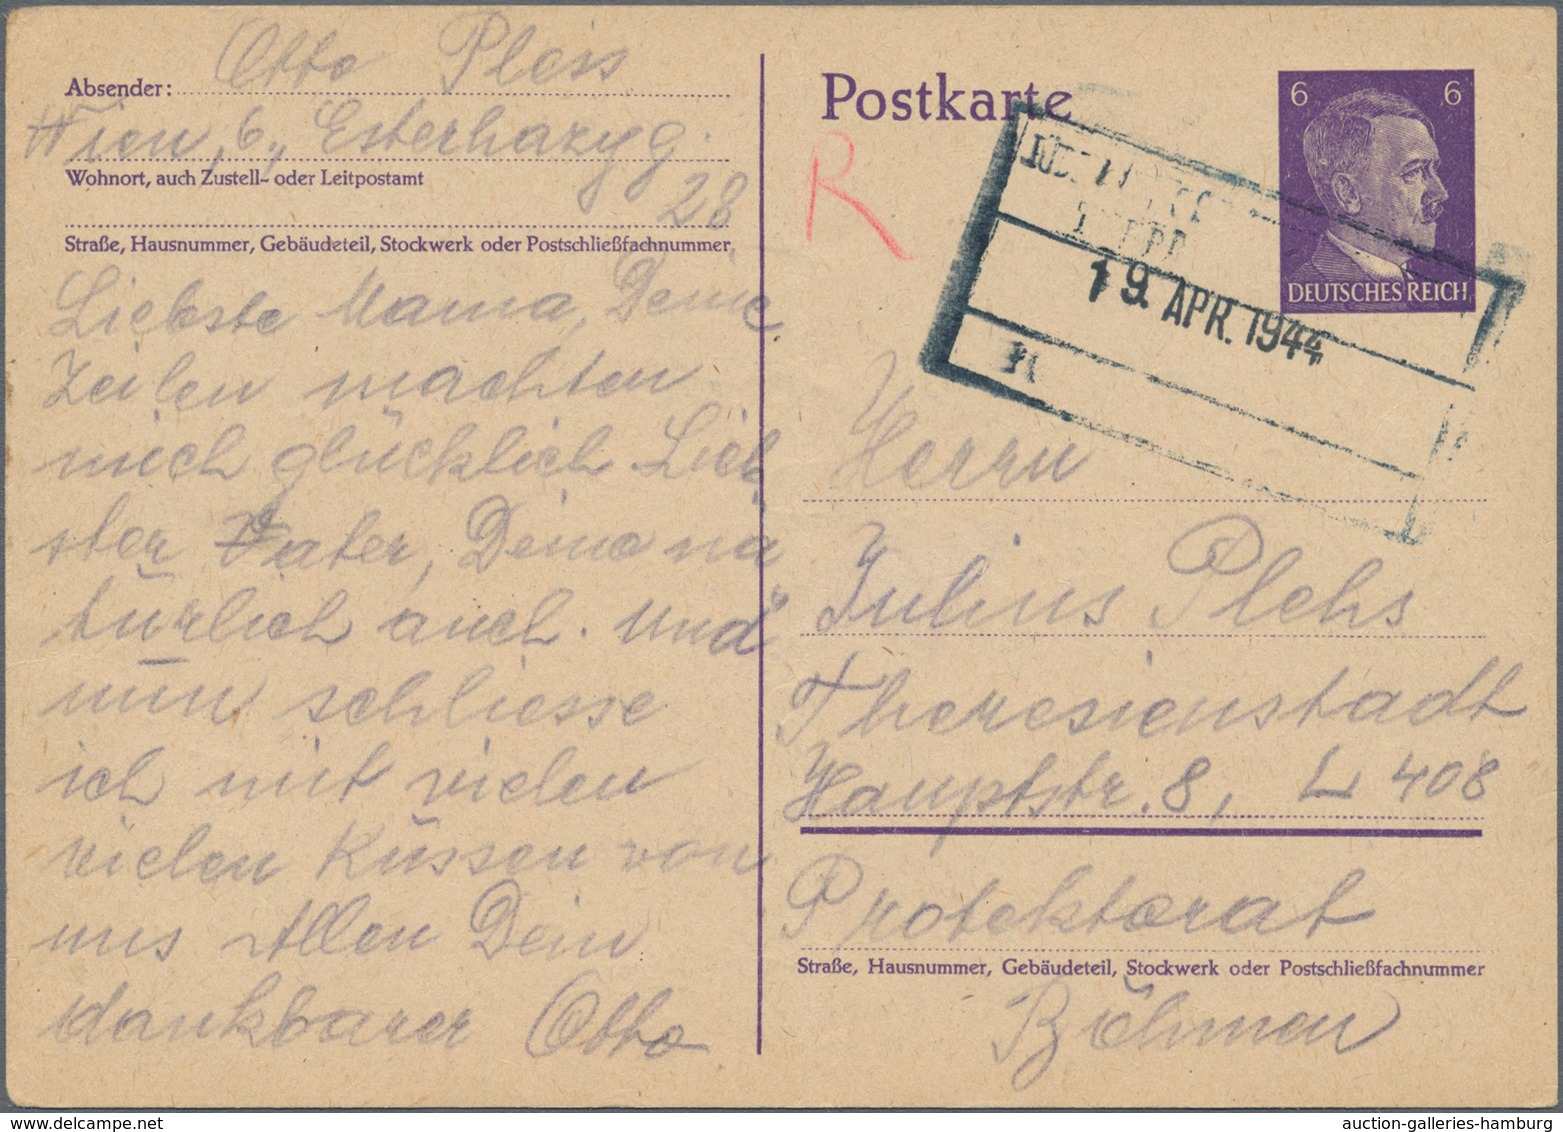 Otto Pless
Absender:
Wien, 6., Esterhazyg.
Wohnort, auch Zustell- oder Leitpostamt
28
Straße, Hausnummer, Gebäudeteil, Stockwerk oder Postschließfachnummer
Liebste Mama, Deine
Zeilen machten
mich glücklich Lieb
ster Vater, Deine na
türlich auch. Und
nun schliesse
ich mit vielen
vielen Küssen von
uns Allen Dein
dankbarer Otto
Postkarte
6 6
DEUTSCHES REICH
R
19. APR. 1944
Herrn
Julius Plehs
Theresienstadt
Hauptstr. 8, L 408
Protektorat
Straße, Hausnummer, Gebäudeteil, Stockwerk oder Postschließfachnummer
Böhmen
auction-galleries-hamburg